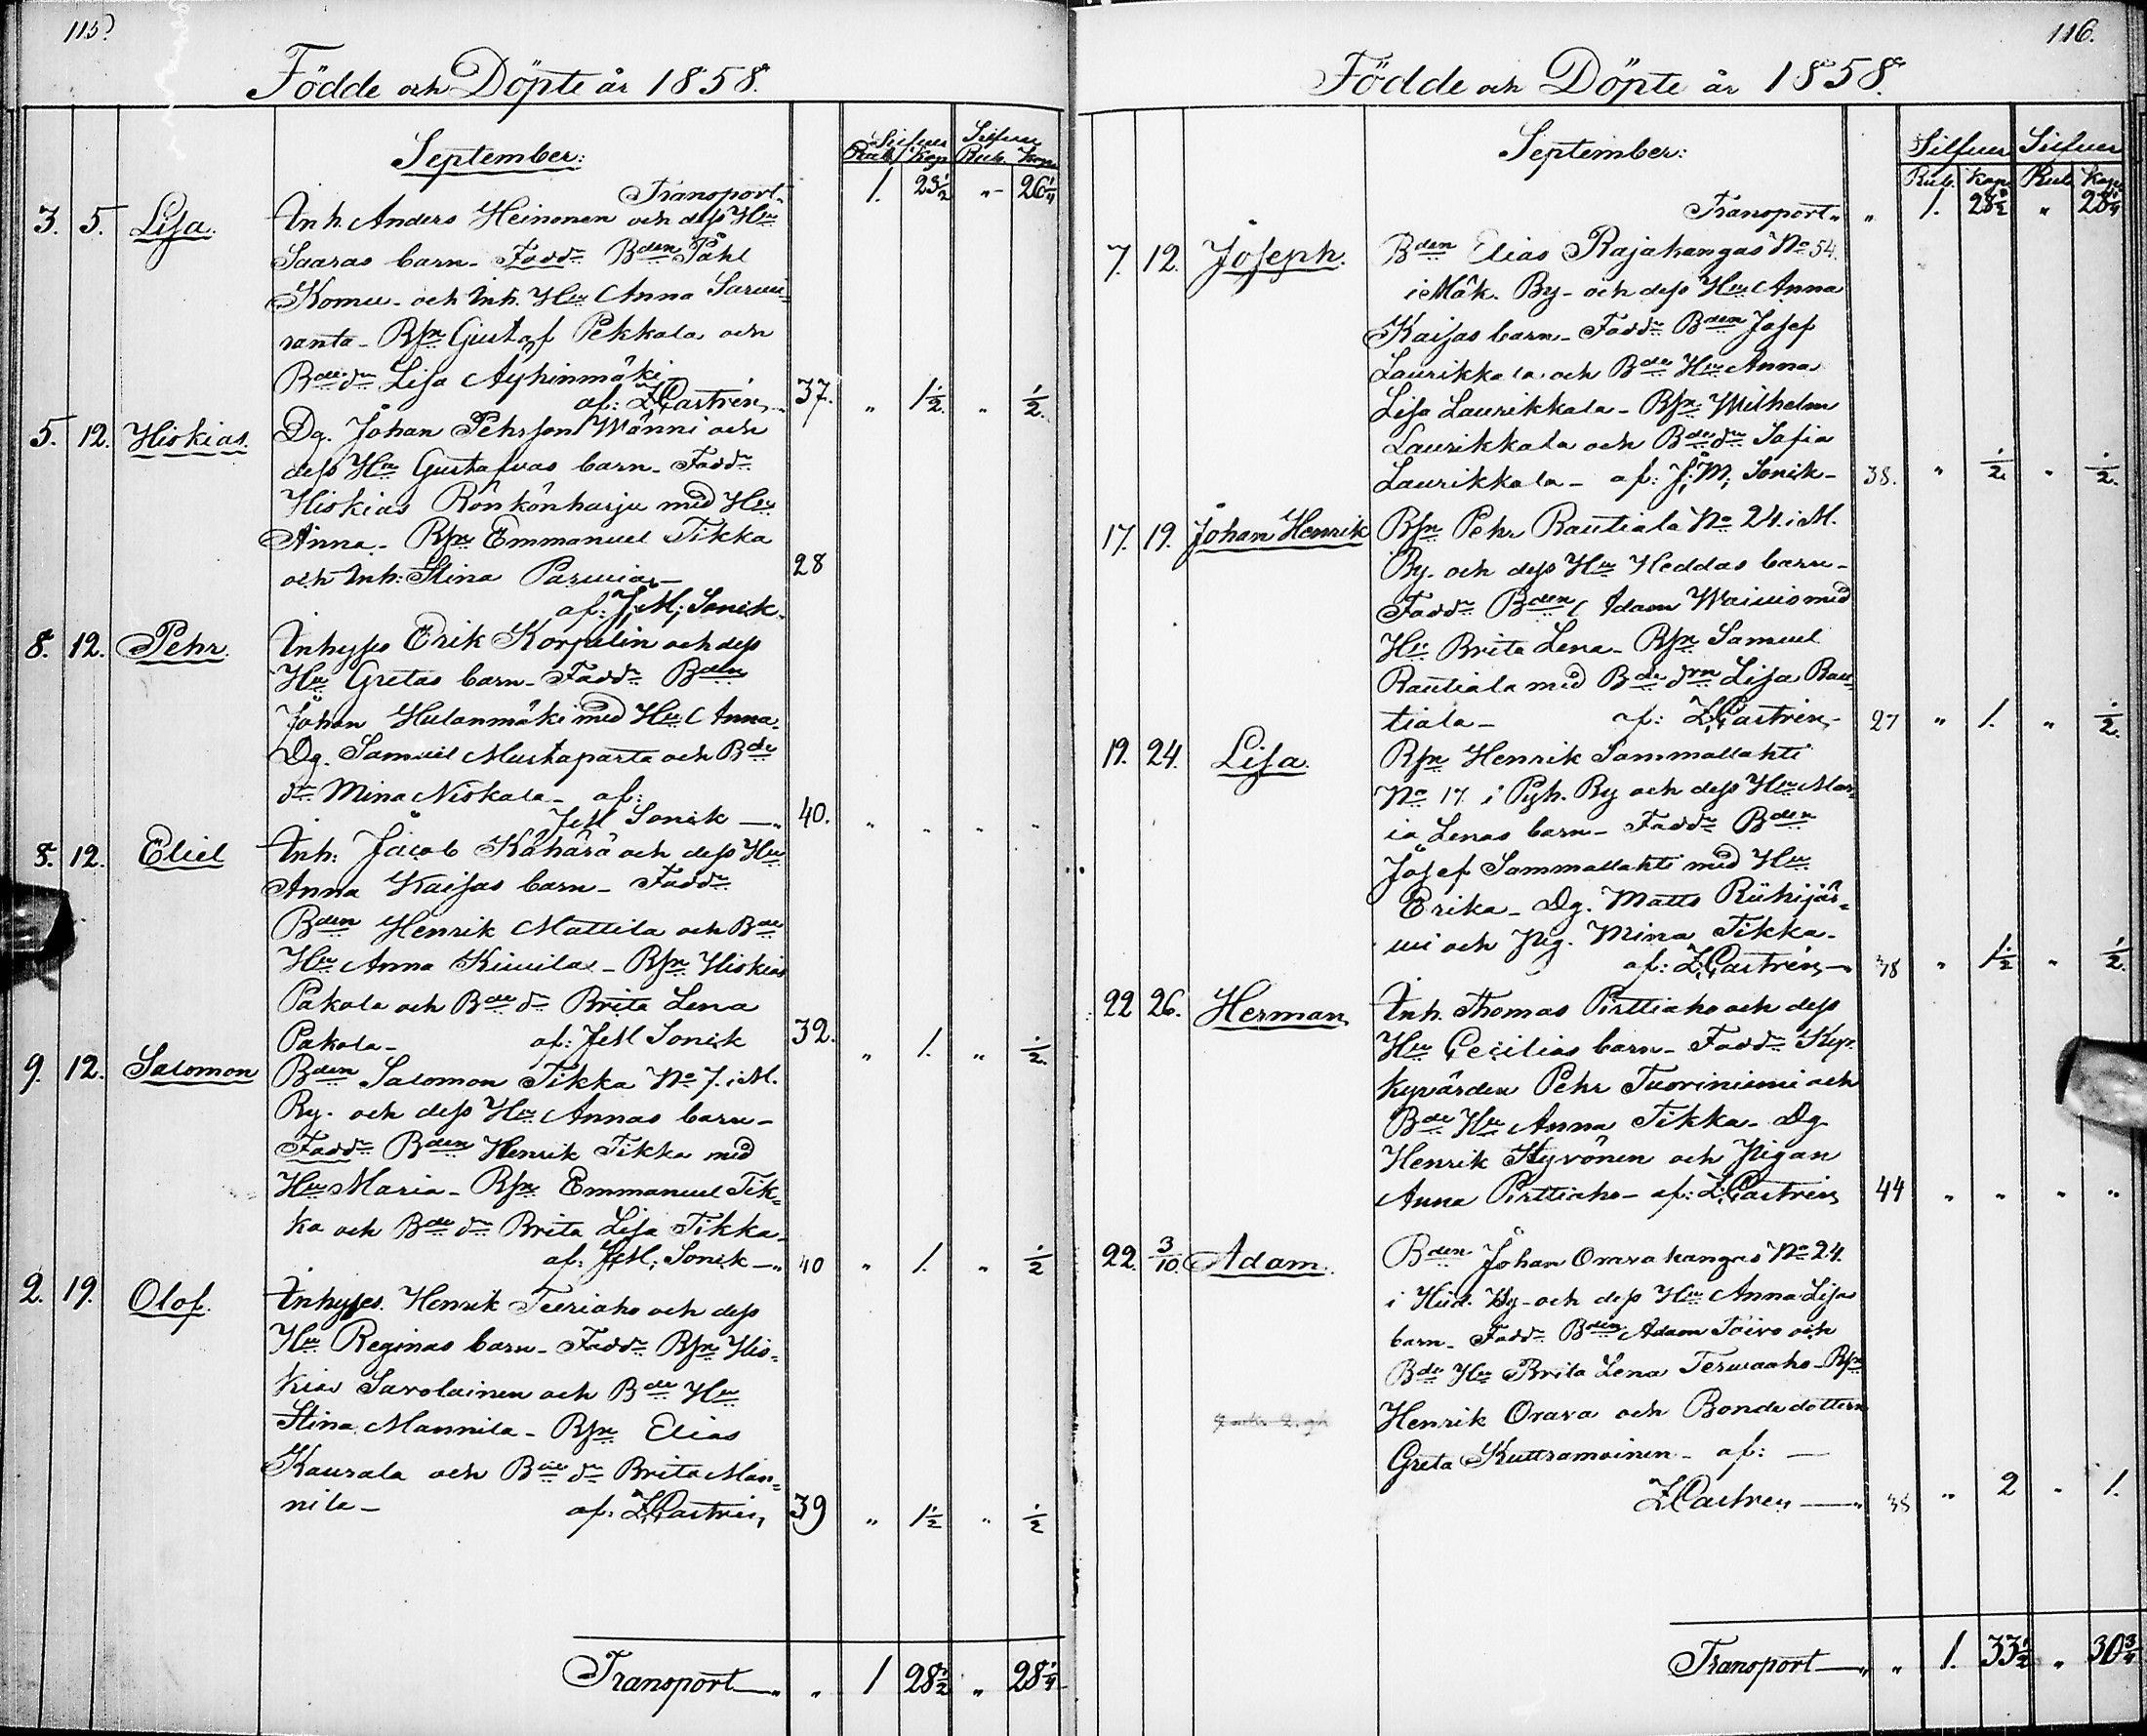 115
Födde och Döpte år 1858.
September:
Silfver Silfver
Rub. Kop. Rub. Kop.
Transport 1. 23 1/2 " 26 1/4
3. 5. Lisa. Inh. Anders Heinonen och dess Hu
Saaras barn - Fadd. Bden Påhl
Komu - och Inh. Hu Anna Sarvi-
ranta - Bsn Gustaf Pekkala och
Bde dr Lisa Ayhinmäki
af: Z. Castrén 37. " 1 1/2 " 1/2
5. 12. Hiskias. Dg. Johan Pehrsson Männi och
dess Hu Gustafvas barn - Fadd.
Hiskias Rönkönharju med Hu
Anna - Bsn Emmanuel Tikka
och Inh: Stina Parviai- 28
af: J. M. Sonck.
8. 12. Pehr. Inhyses Erik Korpelin och dess
Hu Gretas barn - Fadd. Bden
Johan Hulanmäki med Hu Anna.
Dg. Samuel Mustaparta och Bde
dr Mina Niskala - af:
J M Sonck — 40. " " " "
8. 12. Eliel Inh: Jacob Kähärä och dess Hu
Anna Kaisas barn - Fadd.
Bden Henrik Mattila och Bde
Hu Anna Kivila - Bsn Hiskias
Pakola och Bde dr Brita Lena
Pakola - af: J M Sonck 32. " 1. " 1/2
9. 12. Salomon Bden Salomon Tikka No 7. i M.
By. och dess Hu Annas barn -
Fadd. Bden Henrik Tikka med
Hu Maria - Bsn Emmanuel Tik-
ka och Bde dr Brita Lisa Tikka -
af: J. M. Sonck — 40 " 1. " 1/2
2. 19. Olof. Inhyses. Henrik Teeriaho och dess
Hu Reginas barn - Fadd. Bsn His-
kias Savolainen och Bde Hu
Stina Mannila - Bsn Elias
Kaurala och Bde dr Brita Man-
nila - af: Z. Castrén 39 " 1 1/2 " 1/2
Transport — " 1 28 1/2 " 28 1/4
116.
Födde och Döpte år 1858.
September:
Silfver Silfver
Rub. Kop. Rub. Kop.
Transport " " 1. 28 1/2 " 28 1/4
7. 12. Joseph. Bden Elias Rajakangas No 54.
i Mäk. By - och dess Hu Anna
Kaisas barn - Fadd. Bden Josef
Laurikkala och Bde Hu Anna
Lisa Laurikkala - Bsn Wilhelm
Laurikkala och Bde dr Sofia
Laurikkala - af: J. M. Sonck - 38. " 1/2 " 1/2
17. 19. Johan Henrik Bsn Pehr Rautiala No 24. i M.
By. och dess Hu Heddas barn -
Fadd. Bden Adam Wainio med
Hu Brita Lena - Bsn Samuel
Rautiala med Bde drn Lisa Rau-
tiala - af: Z. Castrén - 27 " 1. " 1/2
19. 24. Lisa. Bsn Henrik Sammallahti
No 17. i Pyh. By och dess Hu Mar-
ia Lenas barn - Fadd. Bden
Josef Sammallahti med Hu
Erika - Dg. Matts Riihijär-
vi och Pig. Mina Tikka -
af: Z. Castrén — 38 " 1 1/2 " 1/2
22 26. Herman Inh. Thomas Pirttiaho och dess
Hu Cecilias barn - Fadd. Kyr-
kvärden Pehr Tuoriniemi och
Bde Hu Anna Tikka - Dg.
Henrik Hyvönen och Pigan
Anna Pirttiaho - af: Z. Castrén 44 " " " "
22. 3/10. Adam. Bden Johan Omrakangas No 24.
i Hid. By - och dess Hu Anna Lisas
barn - Fadd. Bden Adam Toivo och
Bde Hu Brita Lena Tervaaho - Bsn
Henrik Orava och Bonde dottern
Greta Kuttramoinen - af: —
Z. Castrén — 38 " 2 " 1.
Transport — " " 1. 33 1/2 " 30 3/4